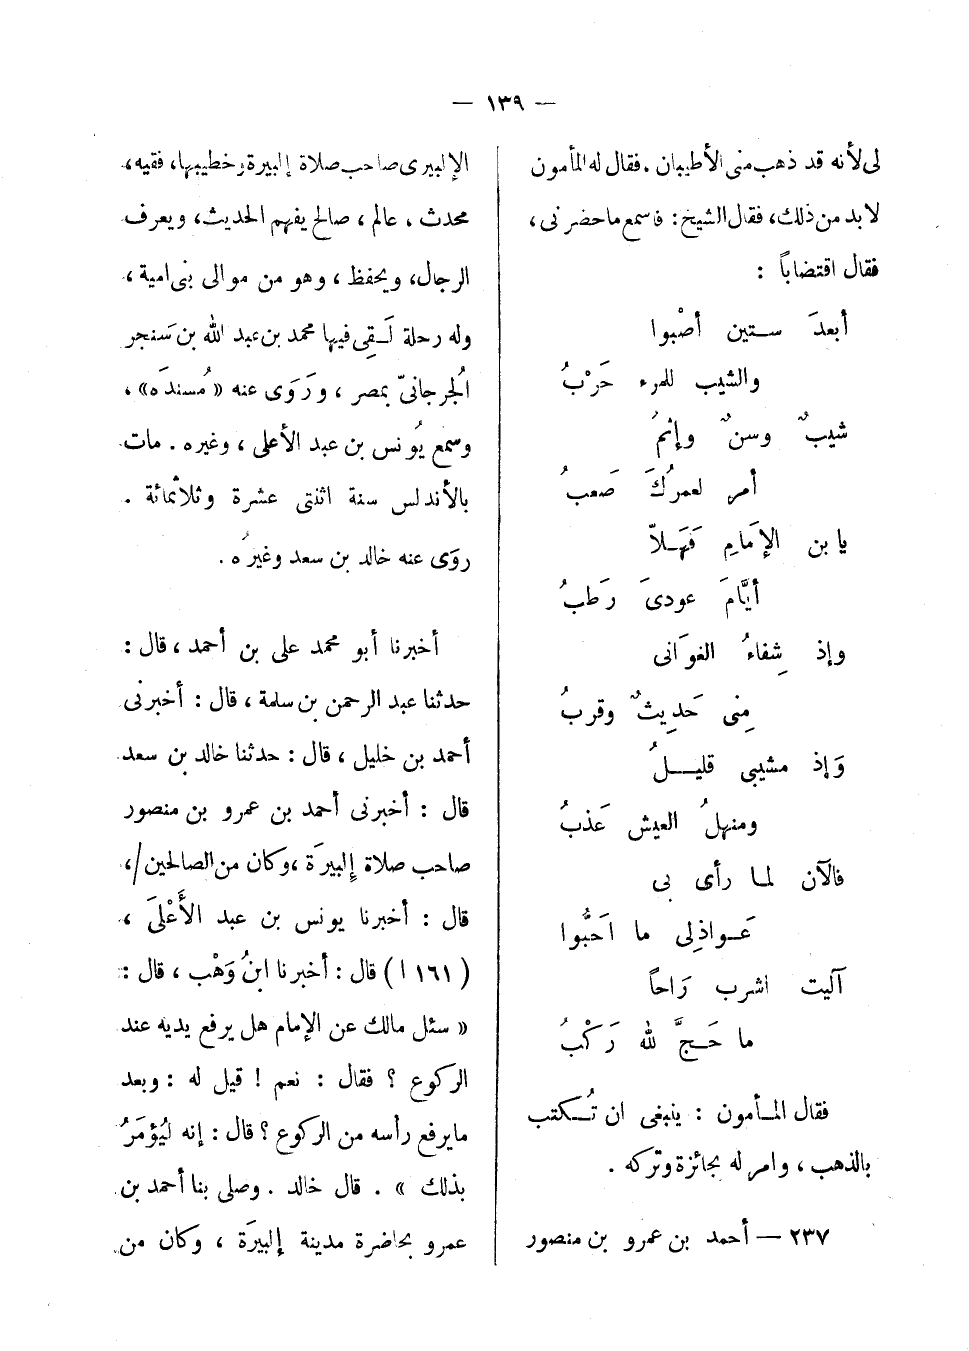 — ١٣٩ —
لى لأنه قد ذهب منى الأطيبان . فقال له المأمون
لا بد من ذلك، فقال الشيخ : فاسمع ما حضرنى ،
فقال اقتضاباً :
أبعدَ ستين أصْبوا
والشيب للمرء حَرْبُ
شيبٌ وسنٌ وإثمُ
أمر لعمرُكَ صَعبُ
يا بن الإمَامِ فَهَلاّ
أيَّامَ عودىَ رَطبُ
وإذ شِفاءُ الغوَانى
مِنى حَدِيثٌ وقربُ
وَإذ مشيبي قليلُ
ومنهلُ العيش عَذبُ
فالآن لما رأى بى
عَواذِلى ما احَبُّوا
آليت اشرب رَاحاً
ما حَجَّ لله رَكْبُ
فقال المأمون : ينبغى ان تُكتب
بالذهب ، وامر له بجائزة وتركه .
٢٣٧ — أحمد بن عمرو بن منصور
الإلبيرى صاحب صلاة إلبيرة وخطيبها، فقيه،
محدث ، عالم ، صالح يفهم الحديث، ويعرف
الرجال، ويحفظ ، وهو من موالى بنى امية ،
وله رحلة لَقِى فيها محمد بن عبد الله بن سَنجر
الجُرجانىّ بمصر ، ورَوَى عنه « مُسندَه » ،
وسمع يُونس بن عبد الأعلى ، وغيره . مات
بالأندلس سنة اثنتى عشرة وثلاثمائة .
روَى عنه خالد بن سعد وغيرُه .
أخبرنا أبو محمد على بن أحمد ، قال :
حدثنا عبد الرحمن بن سلمة ، قال : أخبرنى
أحمد بن خليل ، قال : حدثنا خالد بن سعد
قال : أخبرنى أحمد بن عمرو بن منصور
صاحب صلاة إلبيرَة ، وكان من الصالحين/،
قال : أخبرنا يونس بن عبد الأَعْلَى ،
( ١٦١ ا ) قال : أخبرنا ابنُ وَهْب ، قال :
« سئل مالك عن الإمام هل يرفع يديه عند
الركوع ؟ فقال : نعم ! قيل له : وبعد
ما يرفع رأسه من الركوع ؟ قال : إنه ليُؤمَرُ
بذلك » . قال خالد . وصلى بنا أحمد بن
عمرو بحاضرة مدينة إلبيرَة ، وكان من